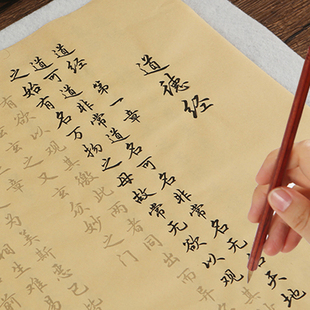 道德经
道经 第一章
道可道非常道名可名非常名无名天地
之始有名万物之母故常无欲以观其
有欲以观其徼此两者同出而异
玄之又玄众妙之门
章
为美斯恶已皆
难易
前